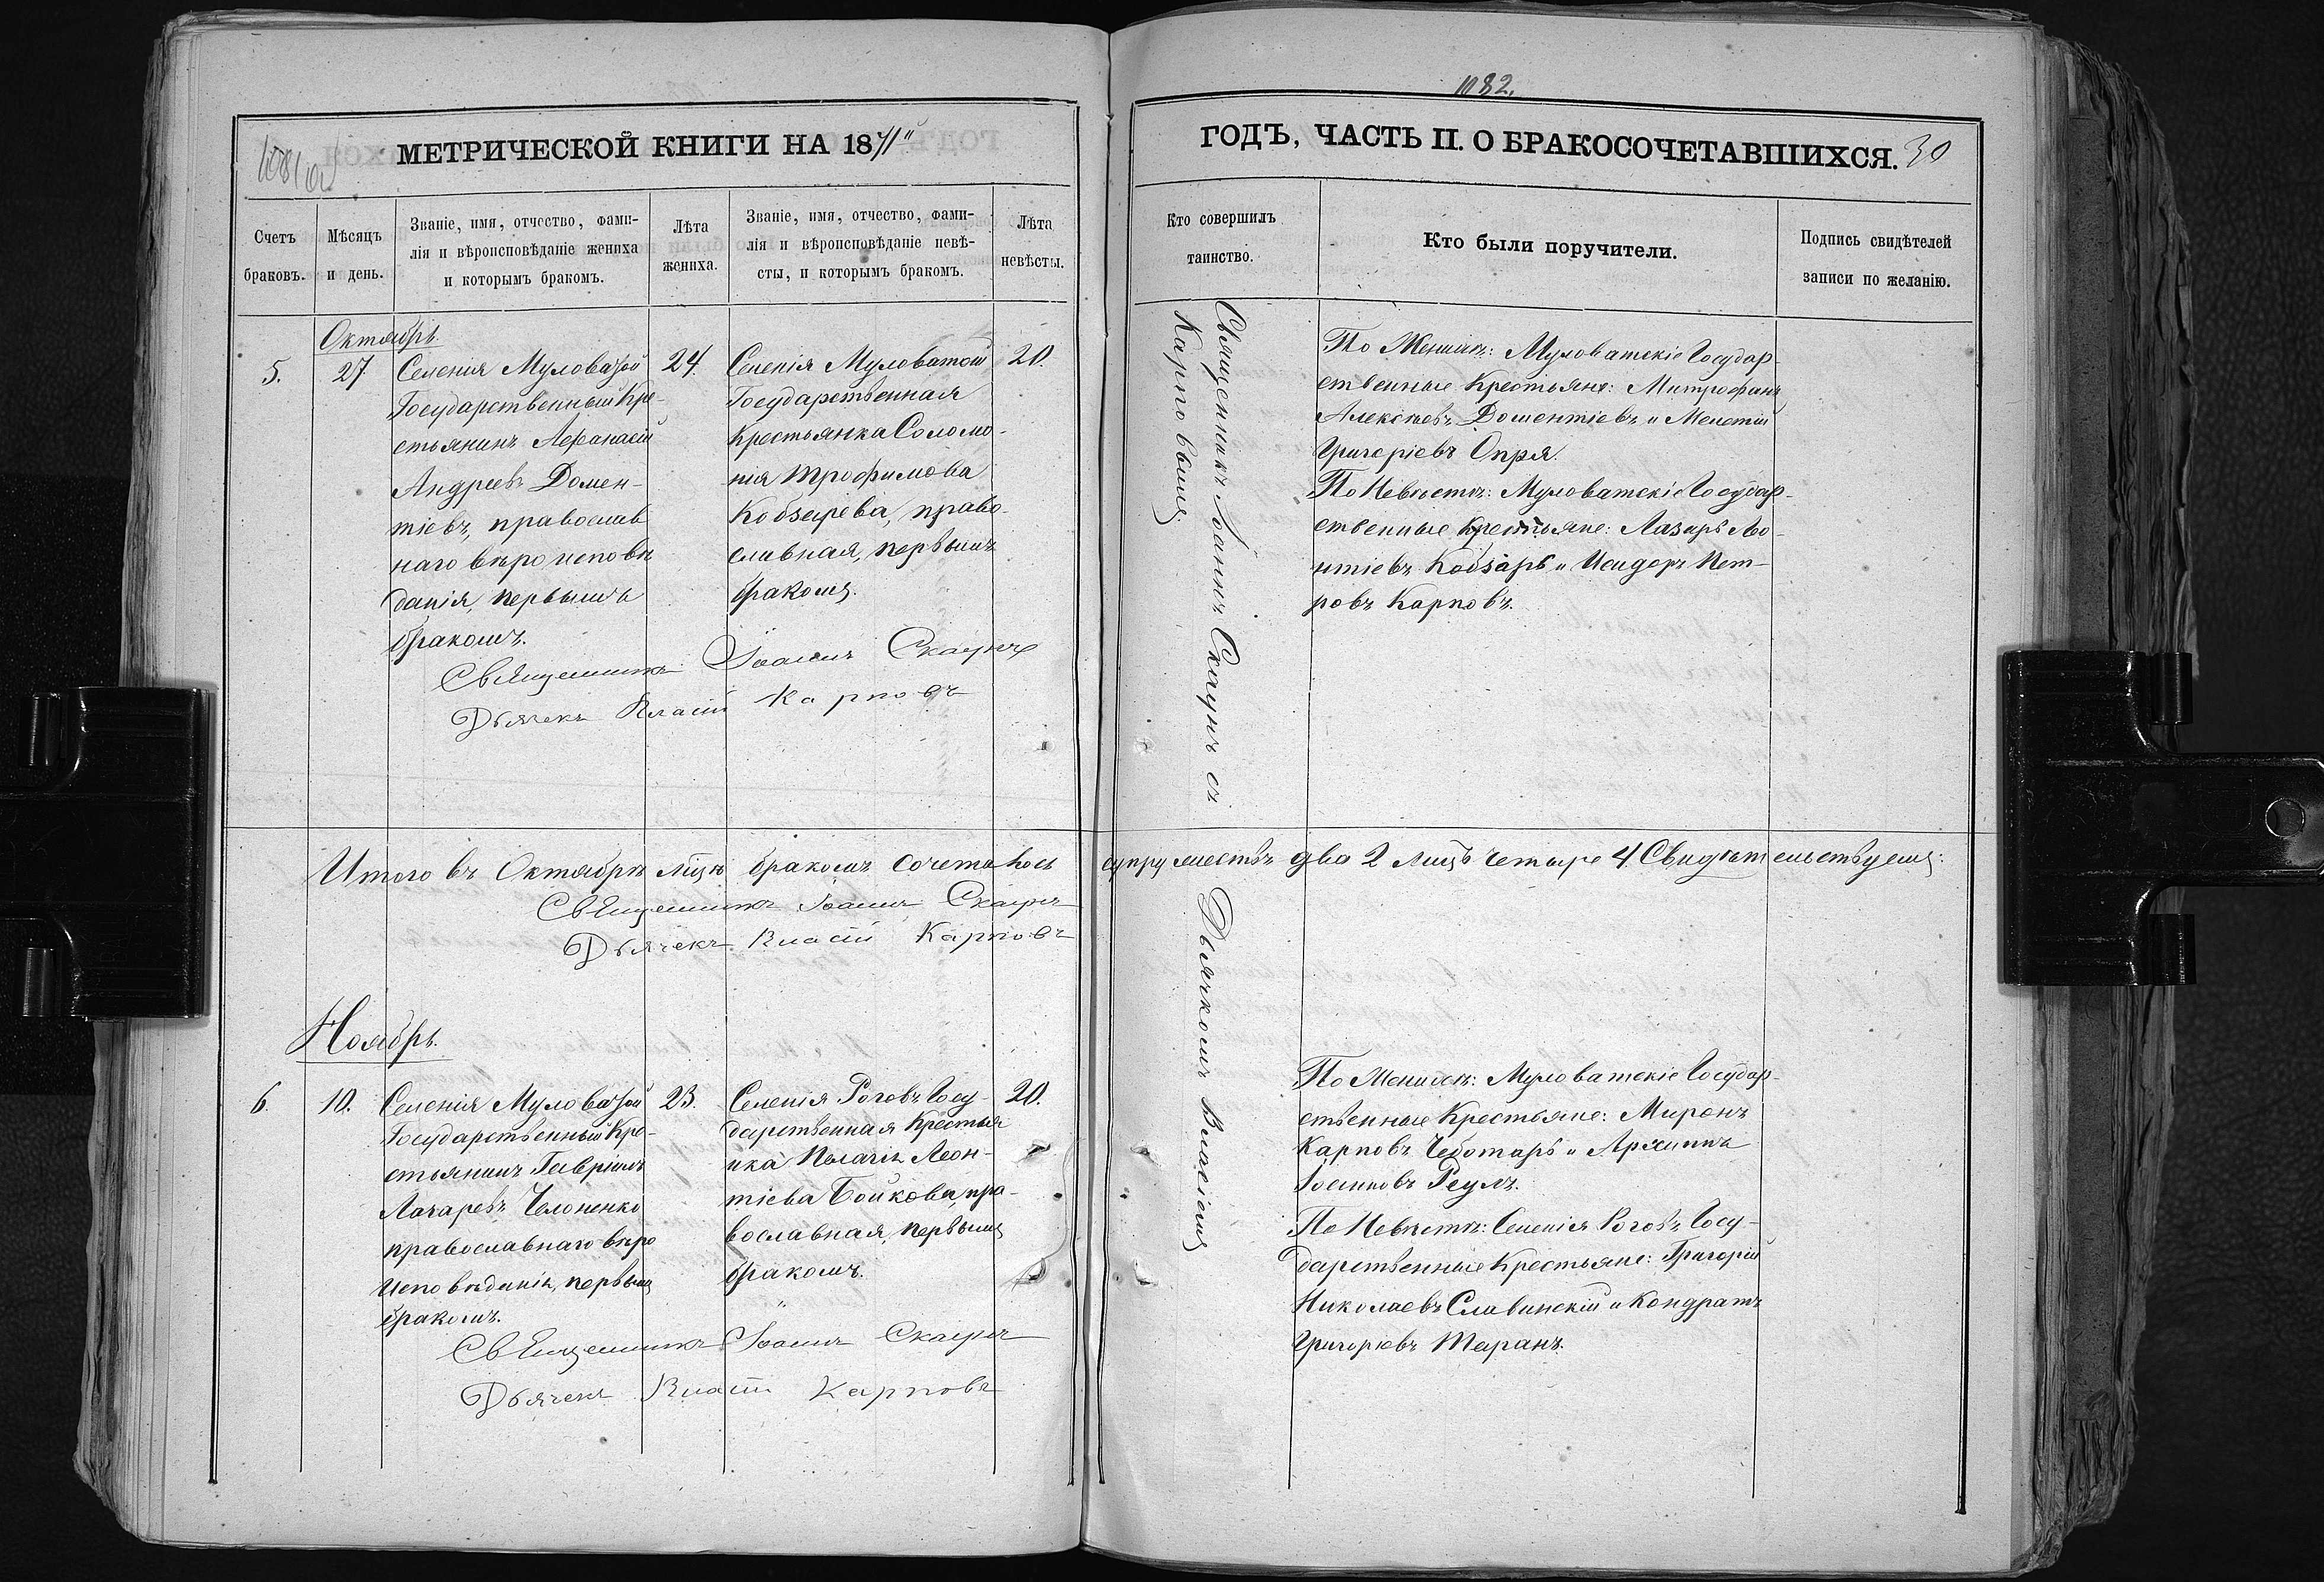 1082.
МЕТРИЧЕСКОЙ КНИГИ НА 1871
ГОДЪ, ЧАСТЬ II. О БРАКОСОЧЕТАВШИХСЯ. 30
Счетъ
браковъ.
Мѣсяцъ
и день.
Званіе, имя, отчество, фами-
лія и вѣроисповѣданіе жениха
и которымъ бракомъ.
Лѣта
жениха.
Званіе, имя, отчество, фами-
лія и вѣроисповѣданіе невѣ-
сты, и которымъ бракомъ.
Лѣта
невѣсты.
Кто совершилъ
таинство.
Кто были поручители.
Подпись свидѣтелей
записи по желанію.
Октябрь.
5.
27.
Селенія Муловатой
Государственный Кре-
стьянинъ Аѳанасій
Андреевъ Домен-
тіевъ, православ
наго вѣроисповѣ
данія, первымъ
бракомъ.
24.
Селенія Муловатой
Государственная
Крестьянка Соломо-
нія Трофимова
Кобзарева, право-
славная, первымъ
бракомъ.
20.
Священникъ Іоаннъ Скаунъ
Дьячекъ Власій Карповъ
Священникъ Іоаннъ Скаунъ съ
Дьячкомъ Власіемъ
Карповымъ
По Женихѣ: Муловатскіе Государ-
ственные Крестьяне: Митрофанъ
Алексѣевъ Доментіевъ и Мелетій
Григоріевъ Опря.
По Невѣстѣ: Муловатскіе Государ-
ственные Крестьяне: Лазарь Лео-
нтіевъ Кобзарь и Исидоръ Пет-
ровъ Карповъ.
Итого въ Октябрѣ мѣцѣ бракомъ сочеталось супружествъ два 2 лицъ четыре 4. Свидѣтельствуемъ:
Священникъ Іоаннъ Скаунъ
Дьячекъ Власій Карповъ
Ноябрь.
6.
10.
Селенія Муловатой
Государственный Кре-
стьянинъ Гавріилъ
Лазаревъ Челоненко
православнаго вѣро
исповѣданія, первымъ
бракомъ.
23.
Селенія Роговъ Госу-
дарственная Крестья
нка Пелагія Леон-
тіева Бойкова, пра-
вославная, первымъ
бракомъ.
20.
Священникъ Іоаннъ Скаунъ
Дьячекъ Власій Карповъ
По Женихѣ: Муловатскіе Государ-
ственные Крестьяне: Миронъ
Карповъ Чеботарь и Архиппъ
Іосиповъ Реулъ.
По Невѣстѣ: Селенія Роговъ Госу-
дарственные Крестьяне: Григорій
Николаевъ Славинскій и Кондратъ
Григорьевъ Таранъ.